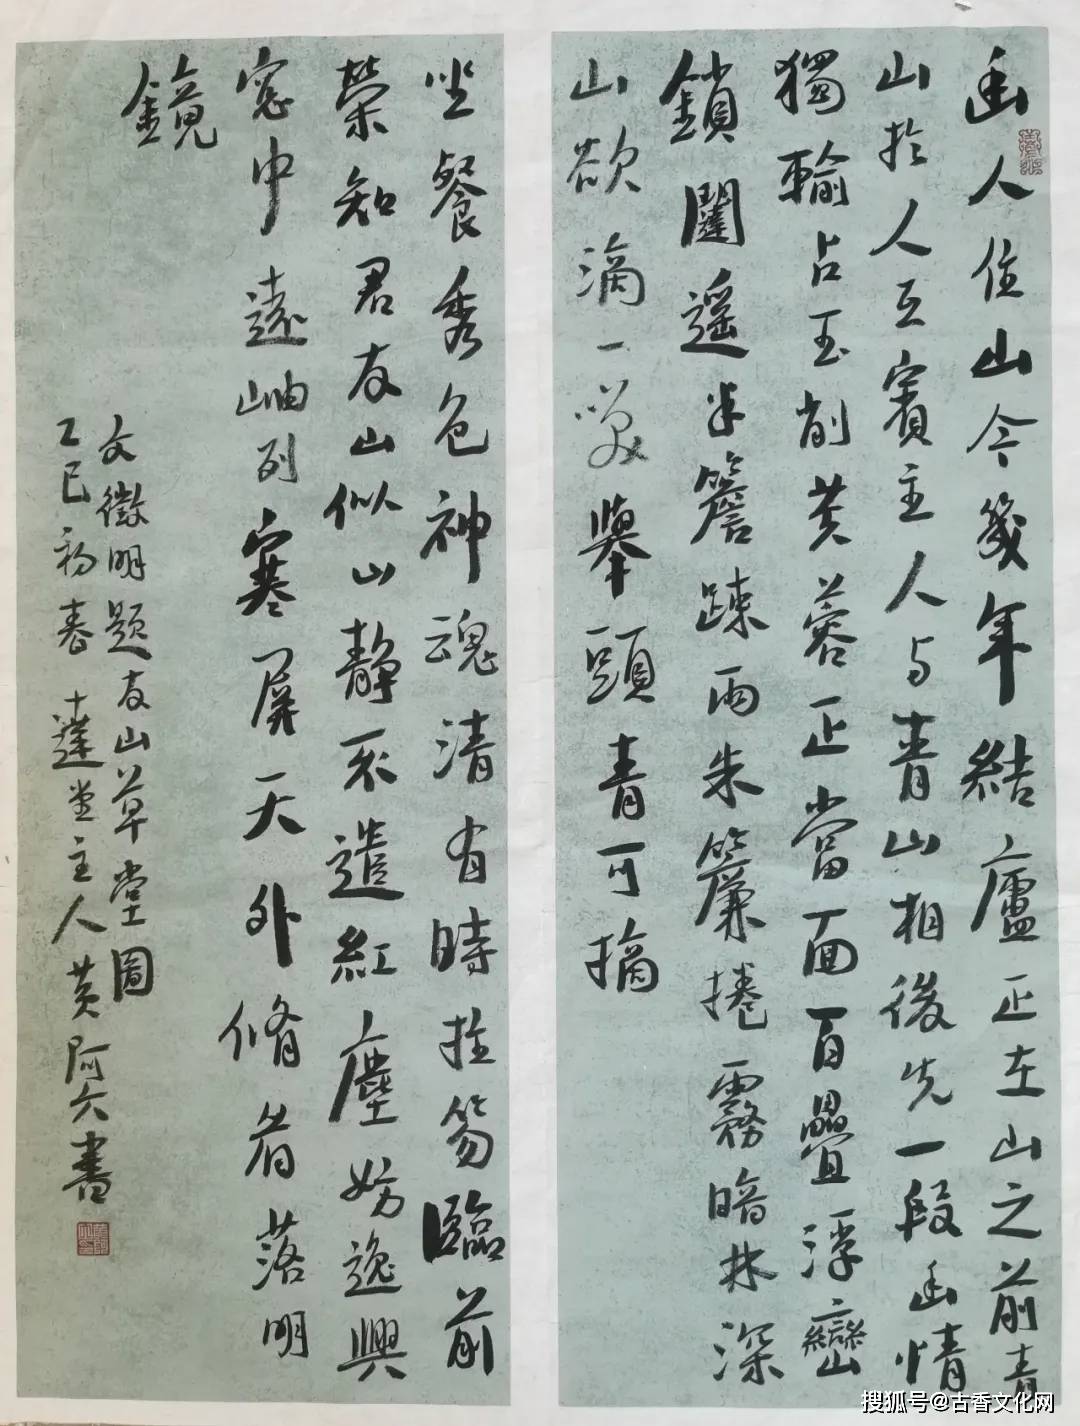 幽人住山今幾年結廬正在山之前青
山於人互賓主人与青山相後先一段幽情
獨輸占玉削芙蓉正當面百疊浮巒
鎖闥遥半簷踈雨朱簾捲霧暗林深
山欲滴一笑舉頭青可摘
坐餐秀色神魂清有時拄笏臨前
榮知君友山似山静不遣紅塵妨逸興
窓中遠岫列寒屏天外脩眉落明
鏡
文徵明題友山草堂圖
乙巳初春 十蘧堂主人黄阿六書
搜狐号@古香文化网